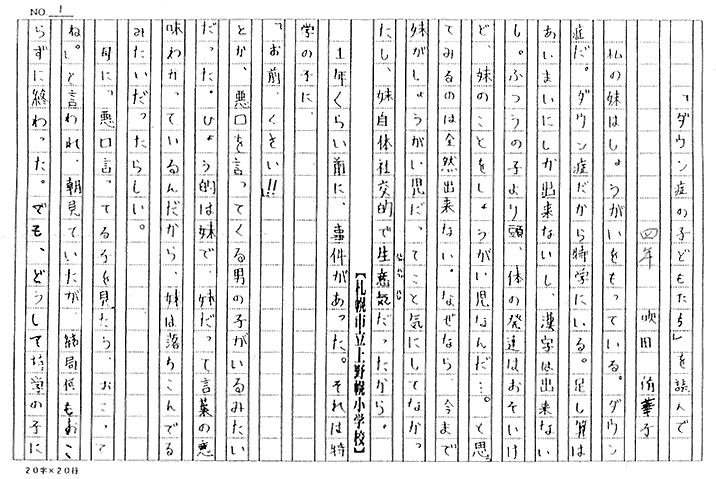 NO. 1
「ダウン症の子どもたち」を読んで
四年 吹田 侑華子
私の妹はしょうがいをもっている。ダウン
症だ。ダウン症だから特学にいる。足し算は
あいまいにしか出来ないし、漢字は出来ない
し。ふつうの子より頭、体の発達はおそいけ
ど、妹のことをしょうがい児なんだ…。と思っ
てみるのは全然出来ない。なぜなら、今まで
妹がしょうがい児だ、てこと気にしてなかっ
たし、妹自体社交的で生意気だったから。
【札幌市立上野幌小学校】
1年くらい前に、事件があった。それは特
学の子に、
「お前、くさい!!」
とか、悪口を言ってくる男の子がいるみたい
だった。ひょう的は妹で、妹だって言葉の意
味わかっているんだから、妹は落ちこんでる
みたいだったらしい。
母に、「悪口言ってる子を見たら、おこって
ね。」と言われ、朝見ていたが、結局何もおこ
らずに終わった。でも、どうして特学の子に
20字×20行